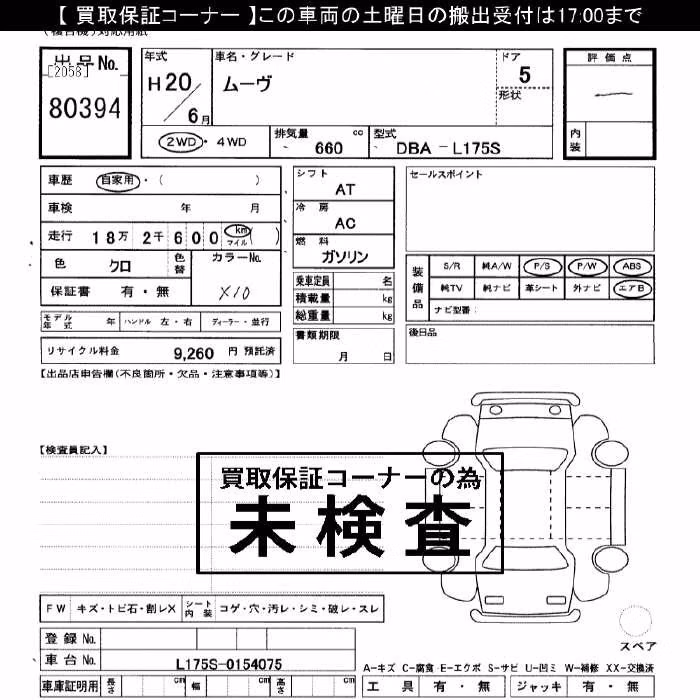 【 買取保証コーナー 】この車両の土曜日の搬出受付は17:00まで
(複合機)対応用紙
出品No.
[2058]
80394
年式
H20
/
6月
車名・グレード
ムーヴ
ドア
5
形状
評価点
内装
2WD・4WD
排気量 cc
660
型式
DBA － L175S
車歴 自家用・( )
車検 年 月
走行 18万 2千 600 km マイル ( )
色 クロ 色替
カラーNo.
X10
保証書 有・無
シフト
AT
冷房
AC
燃料
ガソリン
乗車定員 名
積載量 kg
総重量 kg
書類期限
月 日
セールスポイント
装備品
S/R 純A/W P/S P/W ABS
純TV 純ナビ 革シート 外ナビ エアB
ナビ型番:
後日品
モデル年式 年 ハンドル 左・右 ディーラー・並行
リサイクル料金 9,260 円 預託済
【出品店申告欄(不良箇所・欠品・注意事項等)】
【検査員記入】
買取保証コーナーの為
未検査
FW キズ・トビ石・割レX シート内装 コゲ・穴・汚レ・シミ・破レ・スレ
スペア
登録No.
車台No. L175S-0154075
A-キズ C-腐食 E-エクボ S-サビ U-凹ミ W-補修 XX-交換済
車庫証明用 長さ cm 幅 cm 高さ cm
工具 有・無 ジャッキ 有・無